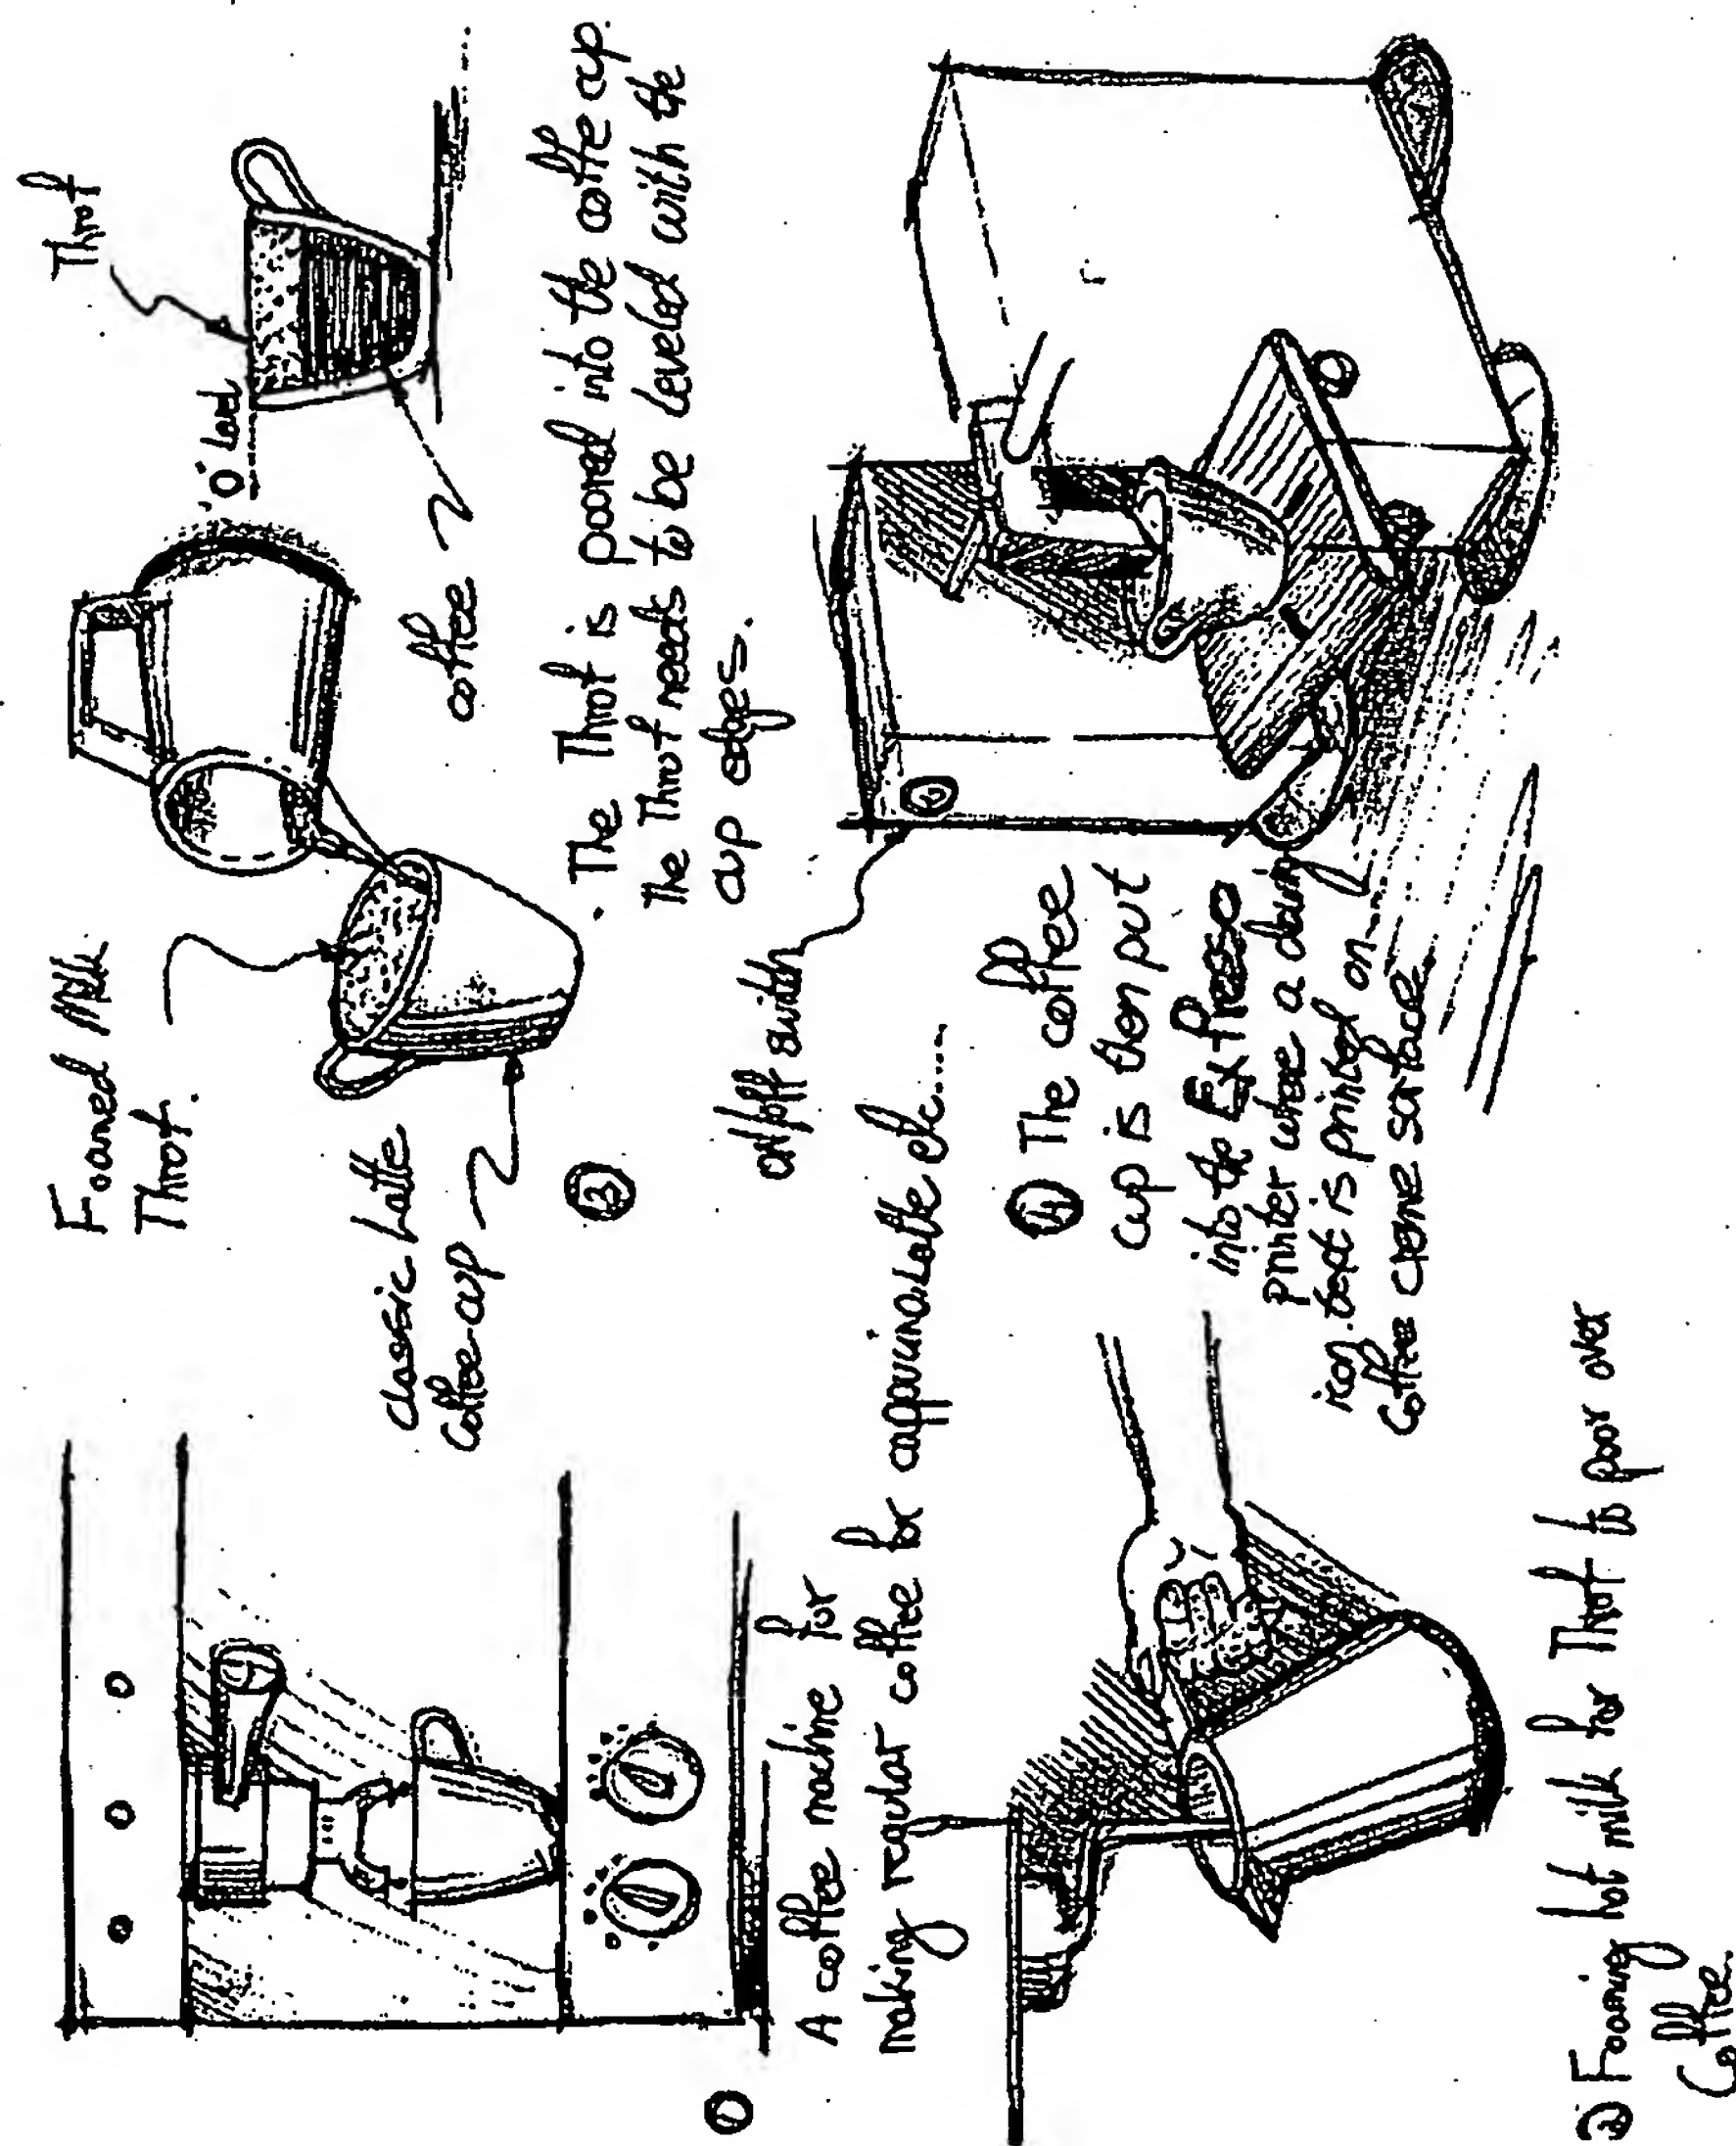 ①
A coffee machine for
making regular coffee for cappucino.Latte etc.....
② Foaming hot milk for Throt to poor over
Coffee.
Foamed Milk
Throt.
classic Latte
Coffee-cup
③
Throt
"0" Level
coffee
. The Throt is poored into the coffe cup.
The Throt needs to be leveled with the
cup edges.
on/off switch
④ The coffee
cup is then put
into the ExPresso
printer where a
icon.text is printed on
Coffee creme surface